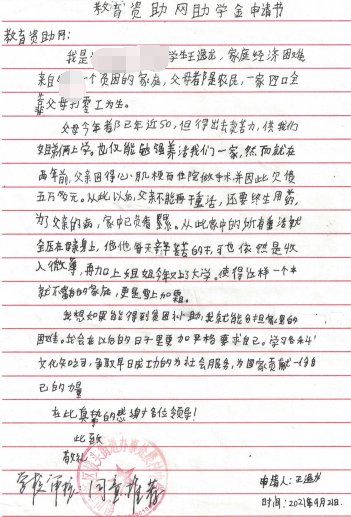 教育资助网助学金申请书
教育资助网:
我是 学生王逸龙，家庭经济困难
来自 一个贫困的家庭，父母都是农民，一家四口全
靠父母打零工为生。
父母今年都已年近50，但得出去卖力，供我们
姐弟俩上学。也仅能勉强养活我们一家，然而就在
两年前，父亲因得心肌梗死住院做手术并因此欠债
五万多元。从此以后，父亲不能再干重活，还要终生用药，
为了父亲的病，家中已负债累累。从此家中的所有重活就
全压在母亲身上，他每天辛辛苦苦的干，可也依然是收
入微薄，再加上姐姐今年又上了大学。使得这样一个本
就不富裕的家庭，更是雪上加霜。
我想如果能得到贫困补助，我就能分担家里的
困难。我会在以后的日子里更加严格要求自己。学习各科
文化知识，争取早日成功的为社会服务，为国家贡献一份自
己的力量
在此真挚的感谢各位领导!
此致
敬礼
学校审核 同意推荐
申请人:王逸龙
时间:2021年9月21日.